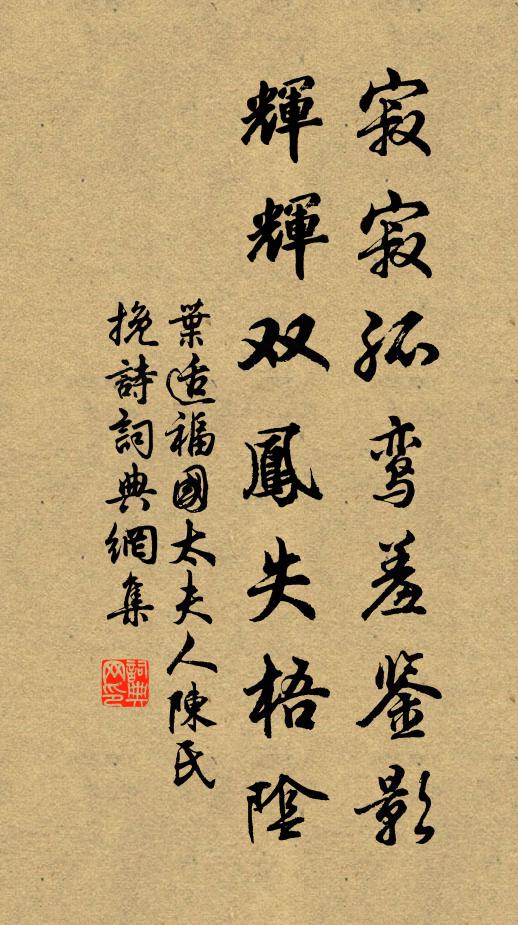 寂寂孤鸾羞鉴影
輝輝双鳳失梧陰
葉适福國太夫人陳氏
挽詩詞典網集
詞典
网印